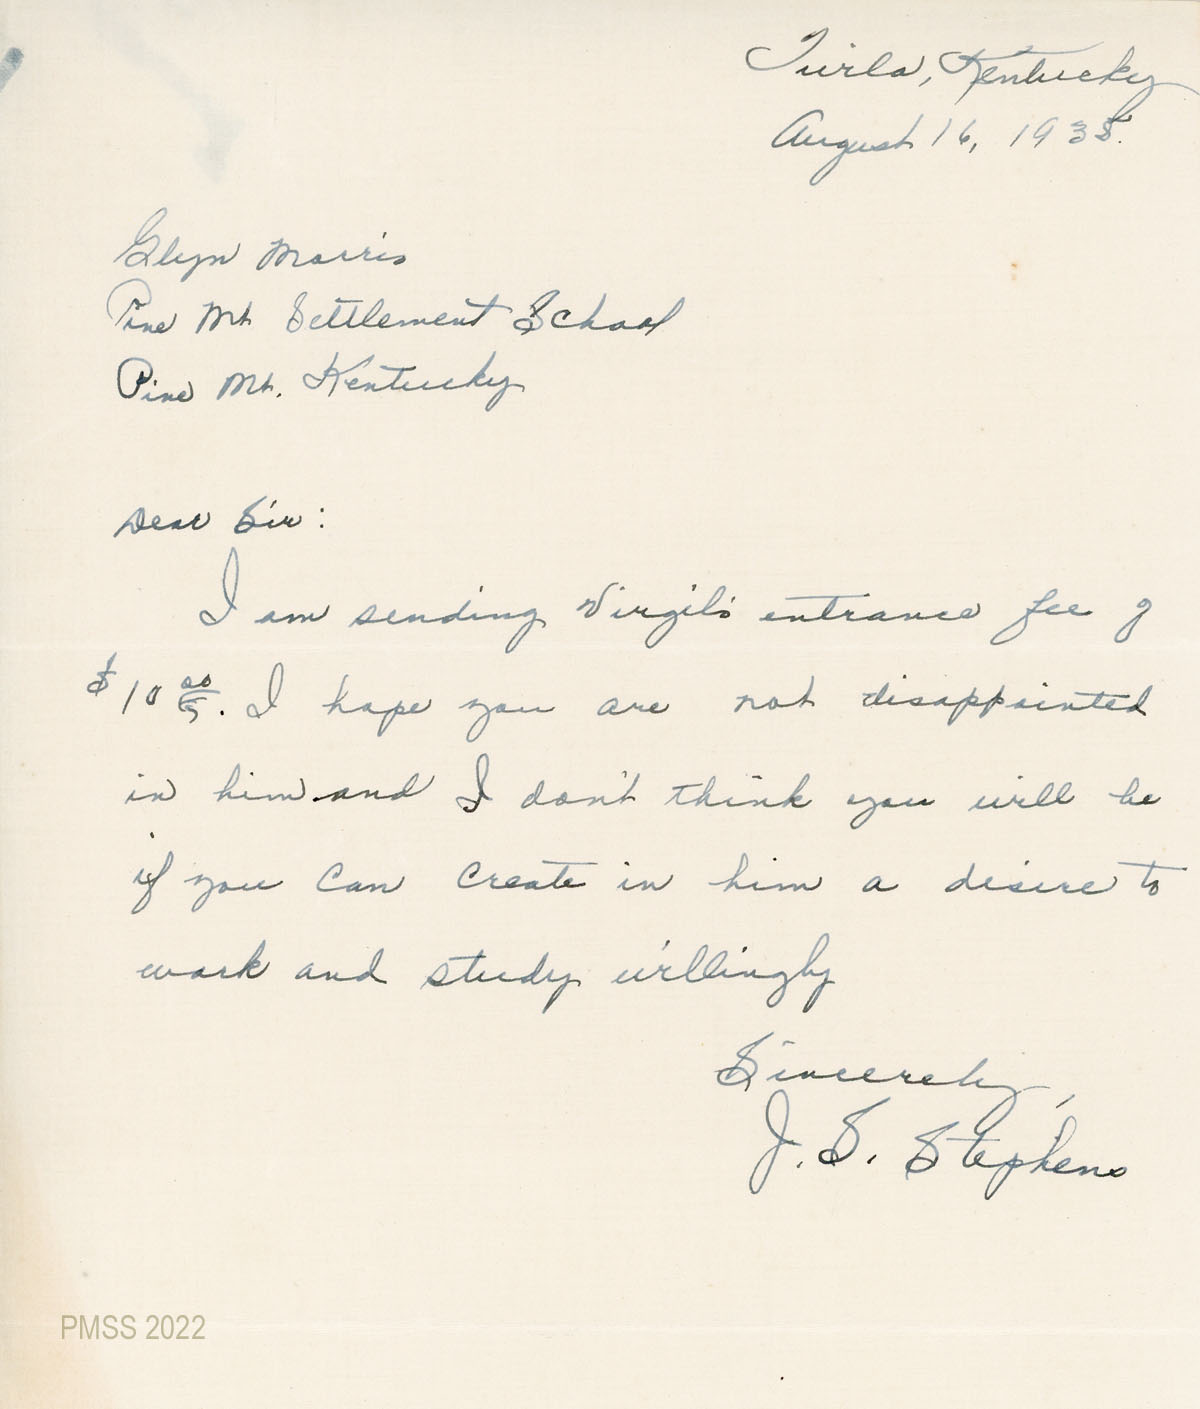 Tuirla, Kentucky
August 16, 1938.
Glyn Morris
Pine Mt. Settlement School
Pine Mt. Kentucky
Dear Sir:
I am sending Virgil's entrance fee of
$10 00. I hope you are not disappointed
in him and I don't think you will be
if you can create in him a desire to
work and study willingly
Sincerely,
J. S. Stephens
PMSS 2022